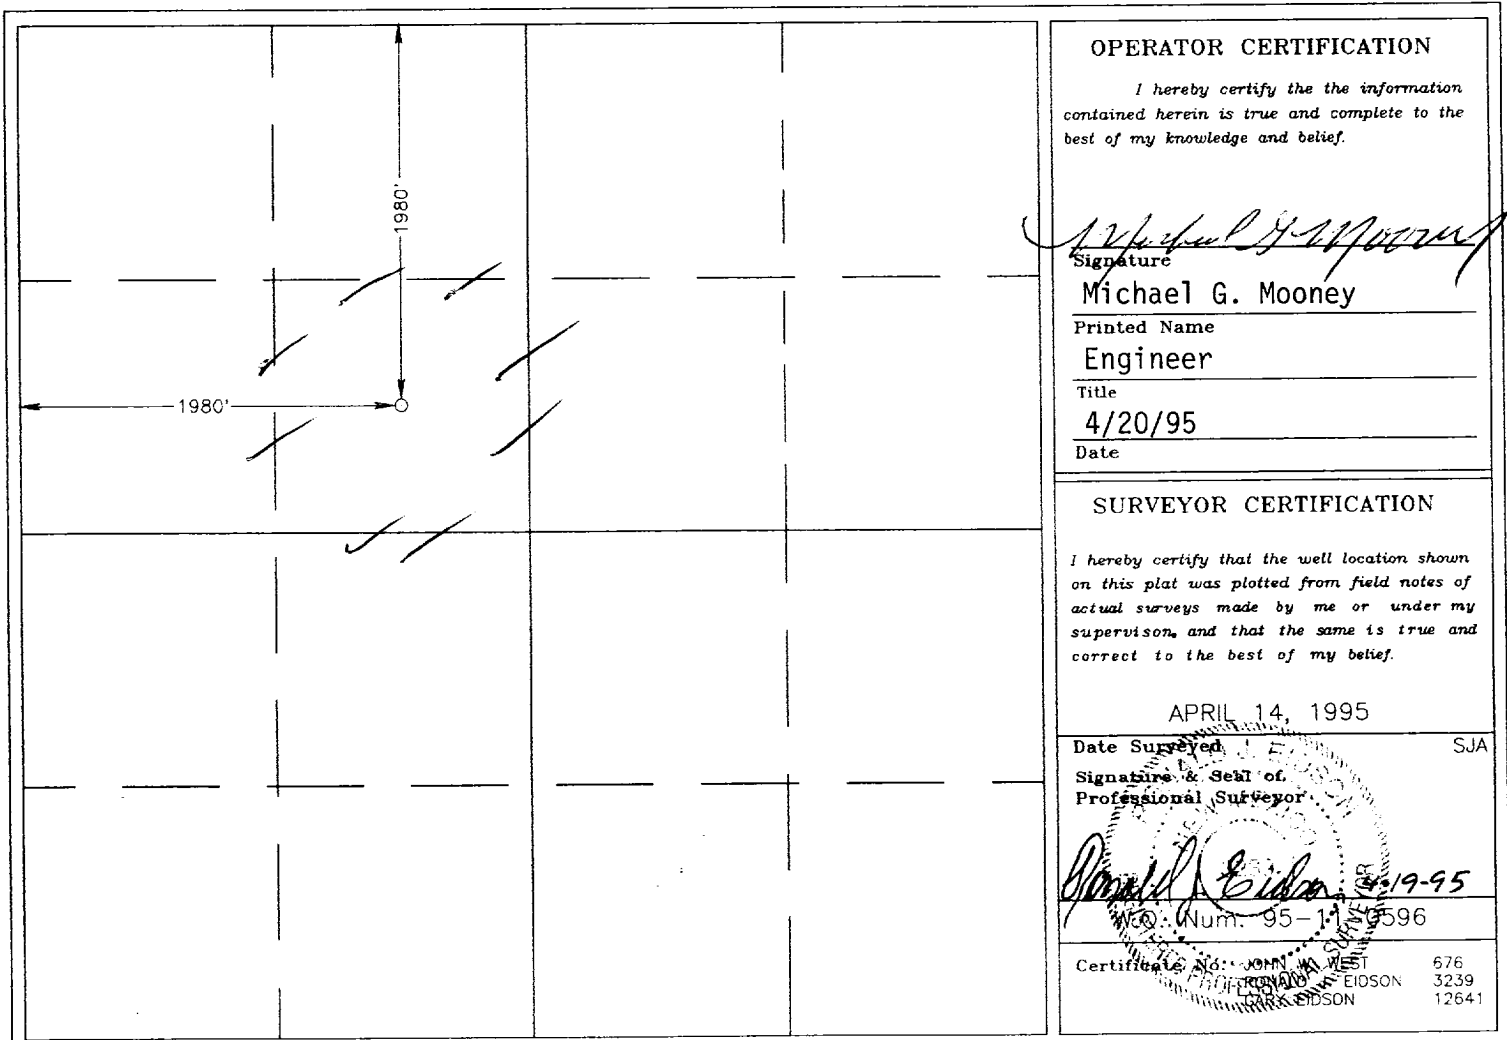 1980'
1980'
OPERATOR CERTIFICATION
I hereby certify the the information
contained herein is true and complete to the
best of my knowledge and belief.
Michael G Mooney
Signature
Michael G. Mooney
Printed Name
Engineer
Title
4/20/95
Date
SURVEYOR CERTIFICATION
I hereby certify that the well location shown
on this plat was plotted from field notes of
actual surveys made by me or under my
supervison, and that the same is true and
correct to the best of my belief.
APRIL 14, 1995
Date Surveyed SJA
Signature & Seal of
Professional Surveyor
Ronald J Eidson 4-19-95
W.O. Num. 95-11-0596
Certificate No. JOHN W. WEST 676
RONALD EIDSON 3239
GARY EIDSON 12641
PROFESSIONAL SURVEYOR